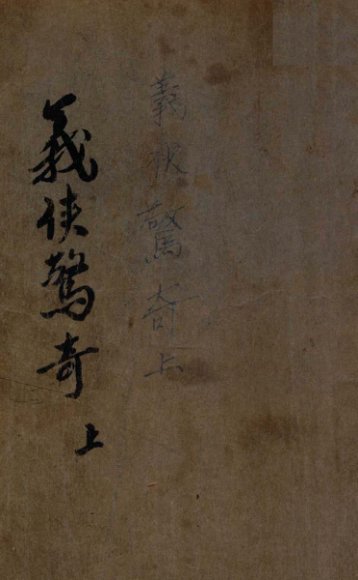 義俠驚奇上
義報驚奇上